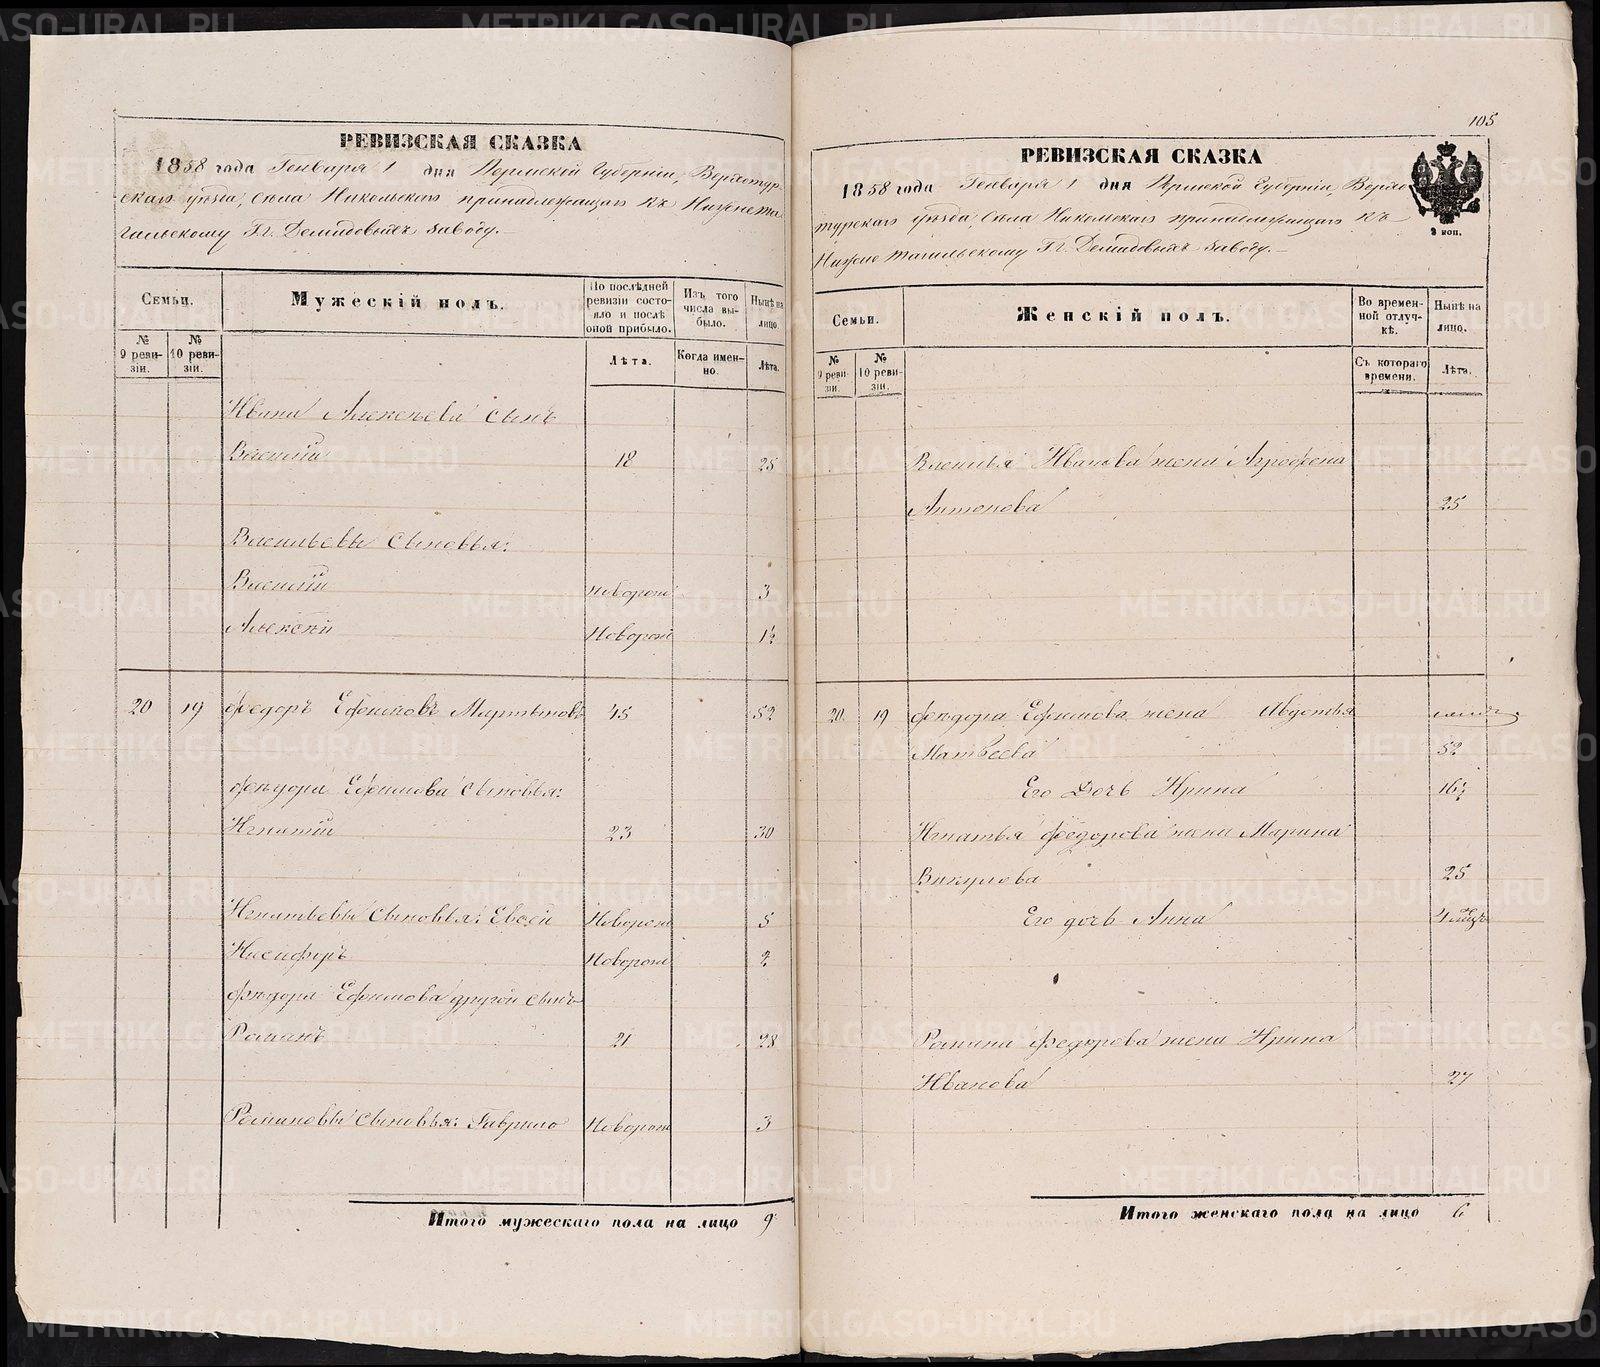 РЕВИЗСКАЯ СКАЗКА
1858 года Генваря 1 дня Пермской Губерніи, Верхотур
скаго уѣзда, села Никольскаго принадлежащаго къ Нижнета
гильскому Гг. Демидовыхъ заводу.
Семьи.
Мужескій полъ.
По послѣдней ревизіи состояло и послѣ оной прибыло.
Изъ того числа выбыло.
Нынѣ на лицо.
№ 9 ревизіи.
№ 10 ревизіи.
Лѣта.
Когда именно.
Лѣта.
Ивана Алексѣева сынъ
Василій 18 25
Васильевы сыновья:
Василій новорож 3
Алексѣй новорож 1½
20 19 Федоръ Ефимовъ Мартыновъ 45 52
Федора Ефимова сыновья:
Игнатій 23 30
Игнатьевы сыновья: Евсей новорож 5
Никифоръ новорож 2
Федора Ефимова другой сынъ
Романъ 21 28
Романовы сыновья: Гаврило новорож 3
Итого мужескаго пола на лицо 9
105
РЕВИЗСКАЯ СКАЗКА
1858 года Генваря 1 дня Пермской Губерніи, Верхо
турскаго уѣзда, села Никольскаго принадлежащаго къ
Нижне тагильскому Гг. Демидовыхъ заводу.
Семьи.
Женскій полъ.
Во временной отлучкѣ.
Нынѣ на лицо.
№ 9 ревизіи.
№ 10 ревизіи.
Съ котораго времени.
Лѣта.
Василья Иванова жена Агрофена
Антонова 25
20 19 Федора Ефимова жена Авдотья
Матвеева 52
Его дочь Ирина 16½
Игнатья Федорова жена Марина
Викулова 25
Его дочь Анна 4 мѣся
Романа Федорова жена Ирина
Иванова 27
Итого женскаго пола на лицо 6
METRIKI.GASO-URAL.RU